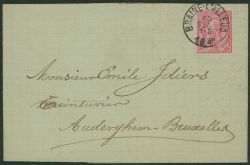 BRAINE-L'ALLEUD
Monsieur Emile Idiers
Teinturier
Auderghem-Bruxelles